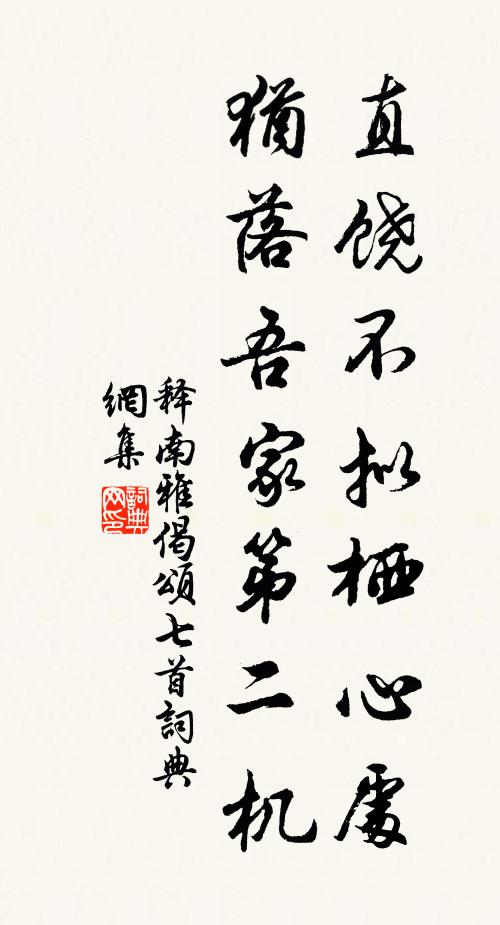 直饶不拟栖心处
犹落吾家第二机
释南雅偈頌七首詞典
網集
詞典
网印